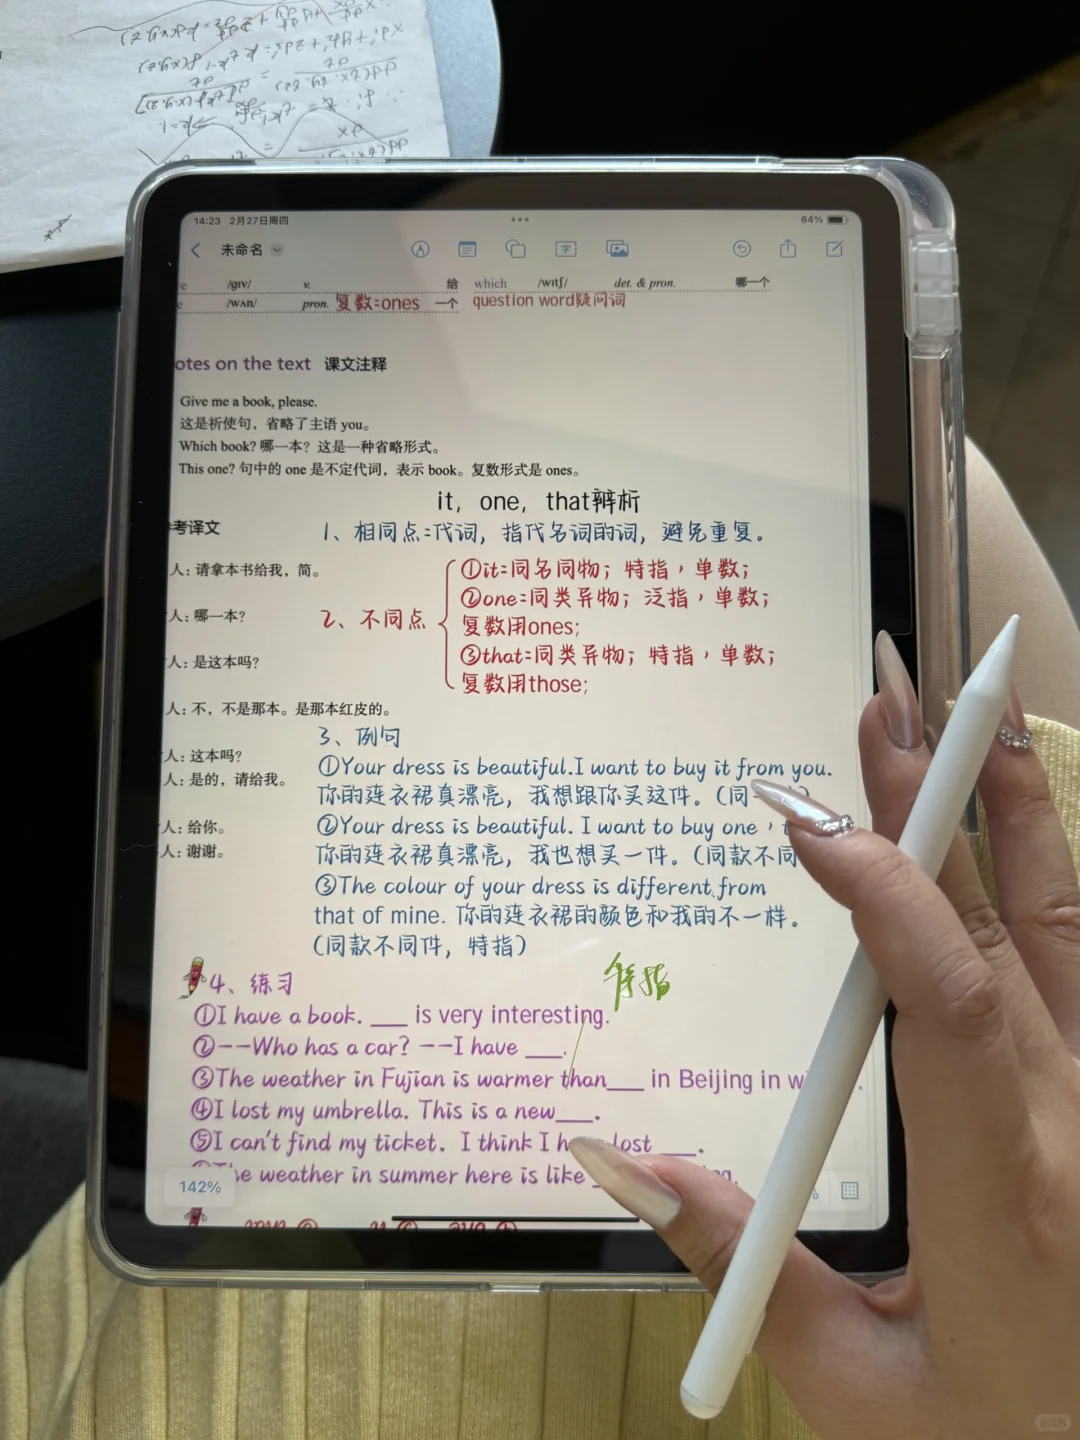 14:23 2月27日周四
84%
未命名
字
/gɪv/ v. 给 which /wɪtʃ/ det. & pron. 哪一个
/wʌn/ pron. 复数=ones 一个 question word疑问词
otes on the text 课文注释
Give me a book, please.
这是祈使句，省略了主语 you。
Which book? 哪一本？这是一种省略形式。
This one? 句中的 one 是不定代词，表示 book。复数形式是 ones。
it，one，that辨析
考译文
1、相同点=代词，指代名词的词，避免重复。
人：请拿本书给我，简。
①it=同名同物；特指，单数；
②one=同类异物；泛指，单数；
人：哪一本？
2、不同点
复数用ones；
人：是这本吗？
③that=同类异物；特指，单数；
复数用those；
人：不，不是那本。是那本红皮的。
3、例句
人：这本吗？
①Your dress is beautiful.I want to buy it from you.
人：是的，请给我。
你的连衣裙真漂亮，我想跟你买这件。（同
人：给你。
②Your dress is beautiful. I want to buy one，
人：谢谢。
你的连衣裙真漂亮，我也想买一件。（同款不同
③The colour of your dress is different from
that of mine. 你的连衣裙的颜色和我的不一样。
（同款不同件，特指）
4、练习
①I have a book. ___ is very interesting.
②--Who has a car? --I have ___.
③The weather in Fujian is warmer than___ in Beijing in
④I lost my umbrella. This is a new___.
⑤I can't find my ticket. I think I lost ___.
The weather in summer here is like
142%